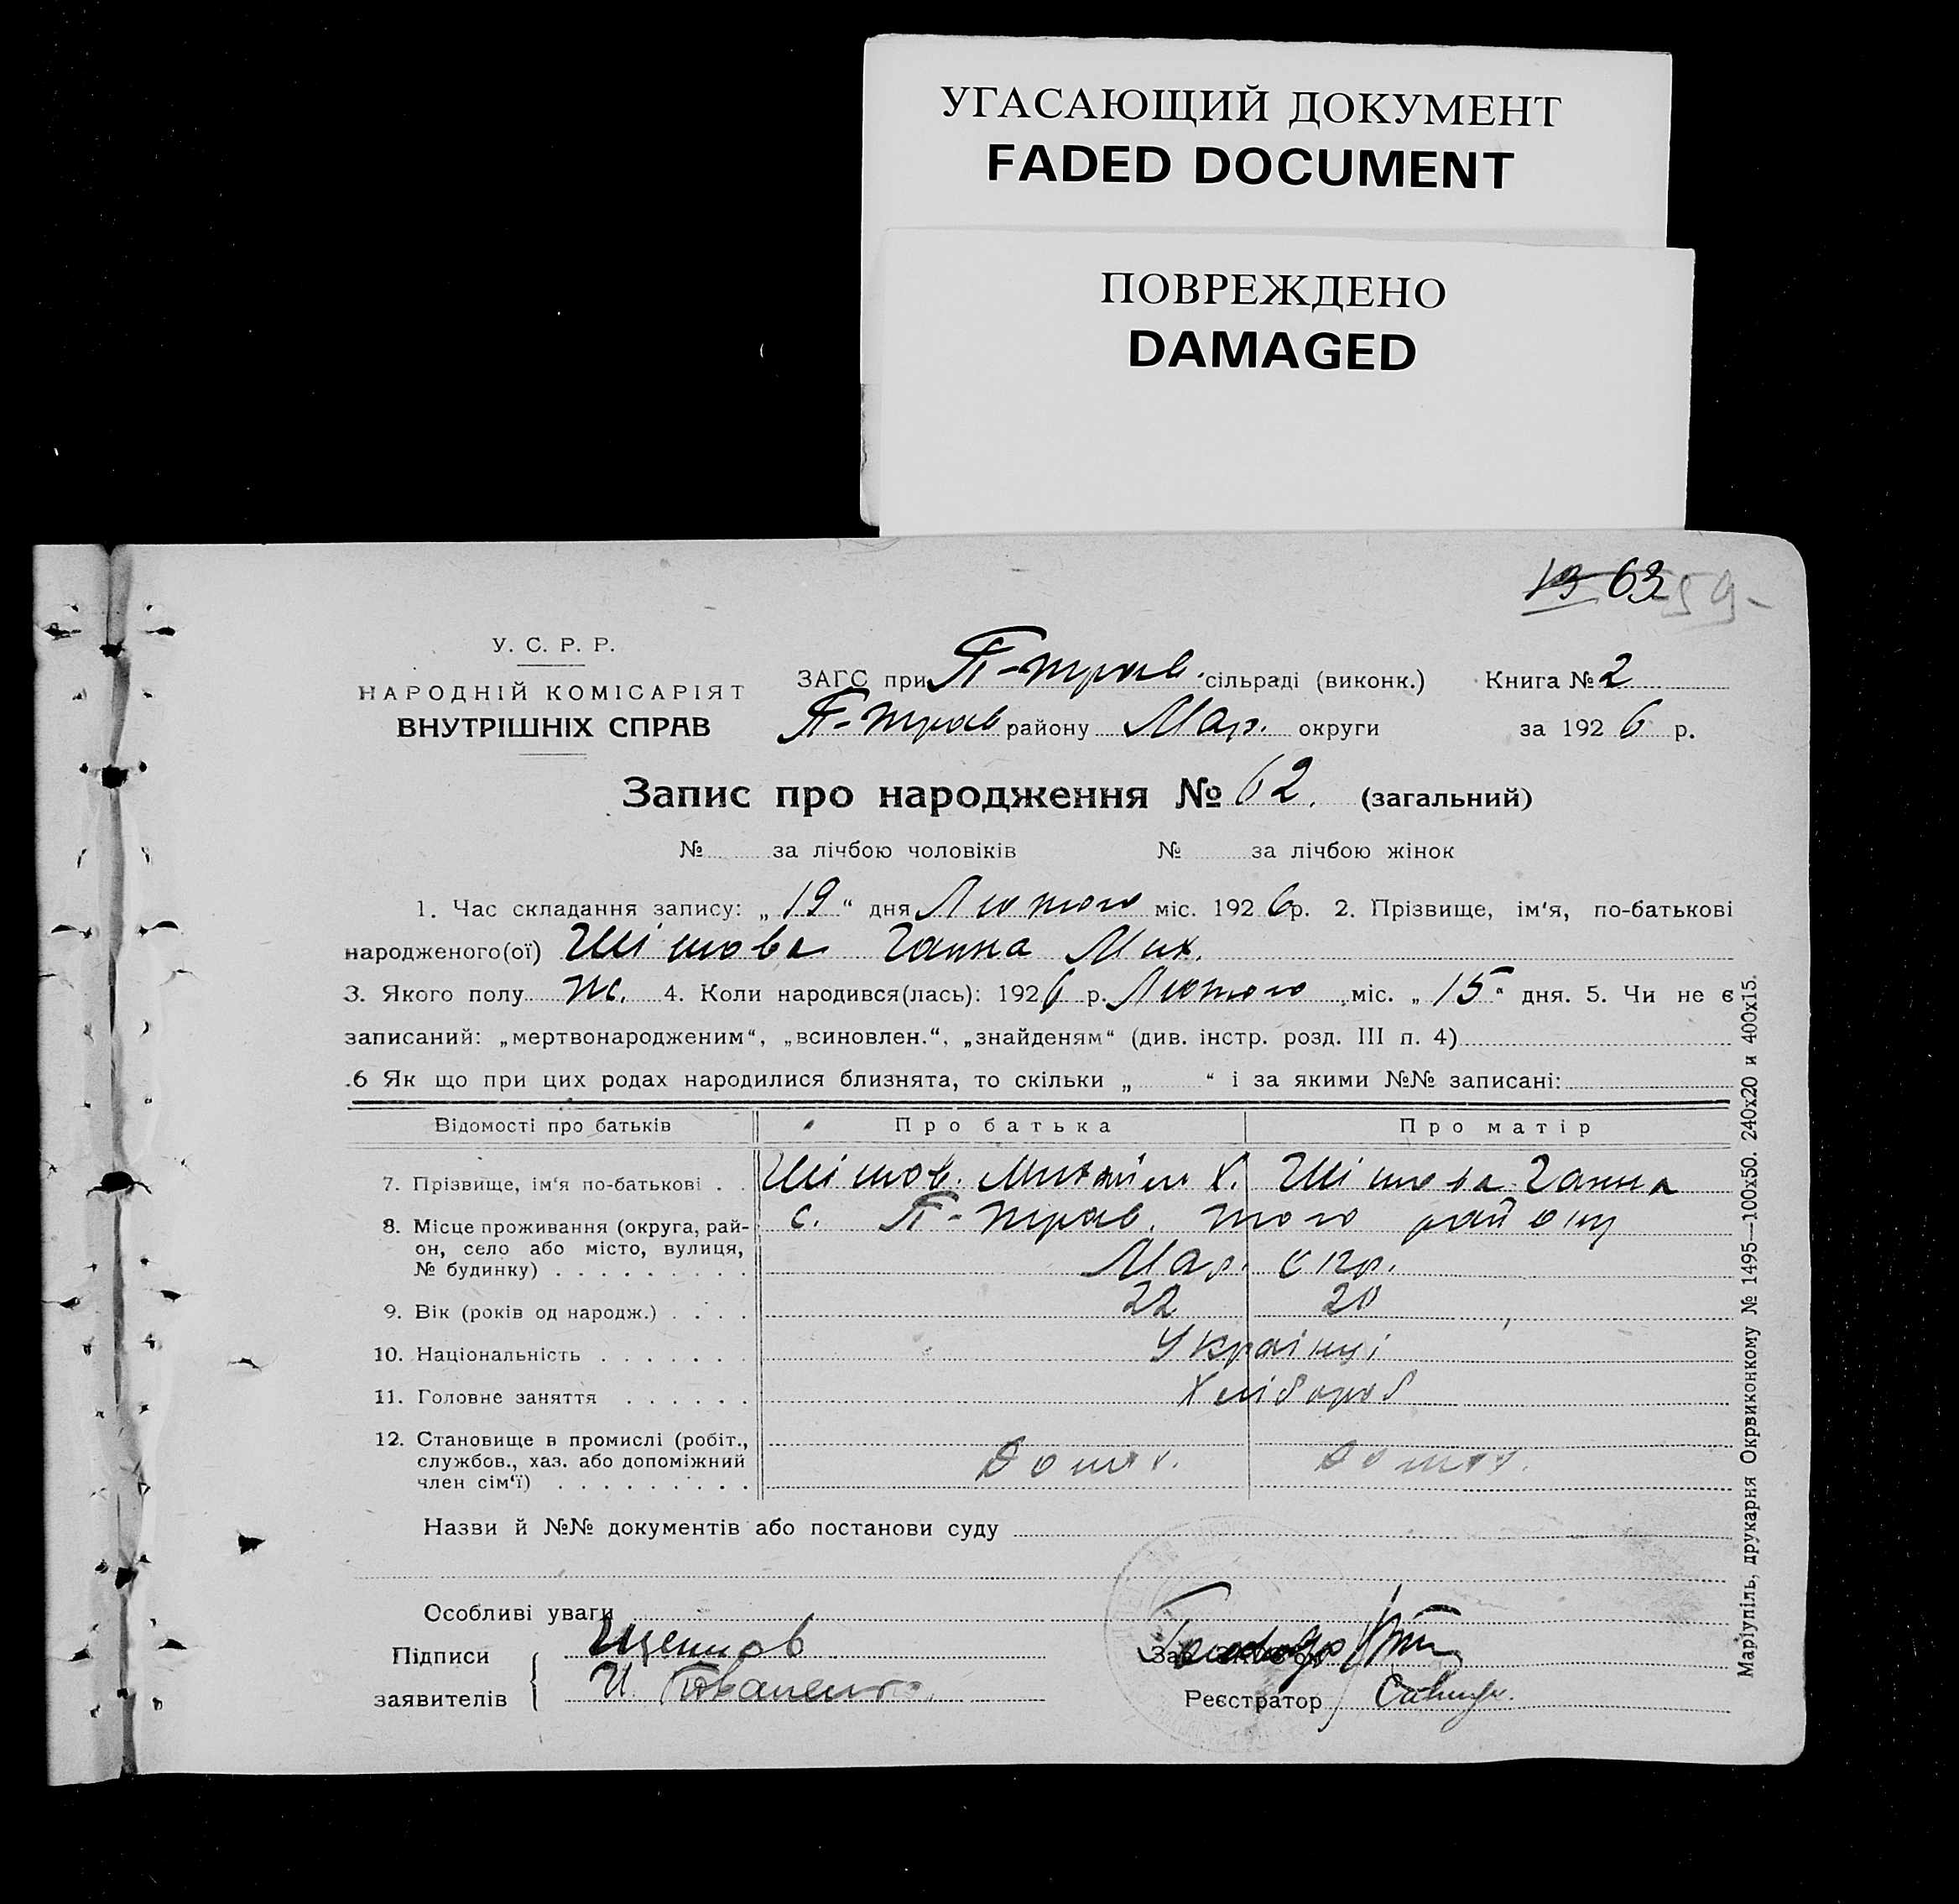 УГАСАЮЩИЙ ДОКУМЕНТ
FADED DOCUMENT
ПОВРЕЖДЕНО
DAMAGED
19 63 59-
У. С. Р. Р.
НАРОДНІЙ КОМІСАРІЯТ
ВНУТРІШНІХ СПРАВ
ЗАГС при П-трав. сільраді (виконк.) Книга № 2
П-трав району Мар. округи за 1926 р.
Запис про народження № 62. (загальний)
№ за лічбою чоловіків № за лічбою жінок
1. Час складання запису: „19“ дня Лютого міс. 1926 р. 2. Прізвище, ім'я, по-батькові
народженого(ої) Шішова Ганна Мих.
3. Якого полу ж. 4. Коли народився(лась): 1926 р. Лютого міс. „15“ дня. 5. Чи не є
записаний: „мертвонародженим“, „всиновлен.“, „знайденям“ (див. інстр. розд. III п. 4)
.6 Як що при цих родах народилися близнята, то скільки „ “ і за якими №№ записані:
Відомості про батьків Про батька Про матір
7. Прізвище, ім'я по-батькові . . Шішов. Михайло Х. Шішова Ганна
8. Місце проживання (округа, рай- с. П-трав. того району
он, село або місто, вулиця,
№ будинку) . . . . . . . . . Мар. окр.
9. Вік (років од народж.) . . . . 22 20
10. Національність . . . . . . . Українці
11. Головне заняття . . . . . . Хлібороб
12. Становище в промислі (робіт.,
службов., хаз. або допоміжний
член сім'ї) . . . . . . . . .
Назви й №№ документів або постанови суду
Особливі уваги
Підписи
заявителів
И. Іваненко
Реєстратор
Маріупіль, друкарня Окрвиконкому № 1495—100х50. 240х20 и 400х15.